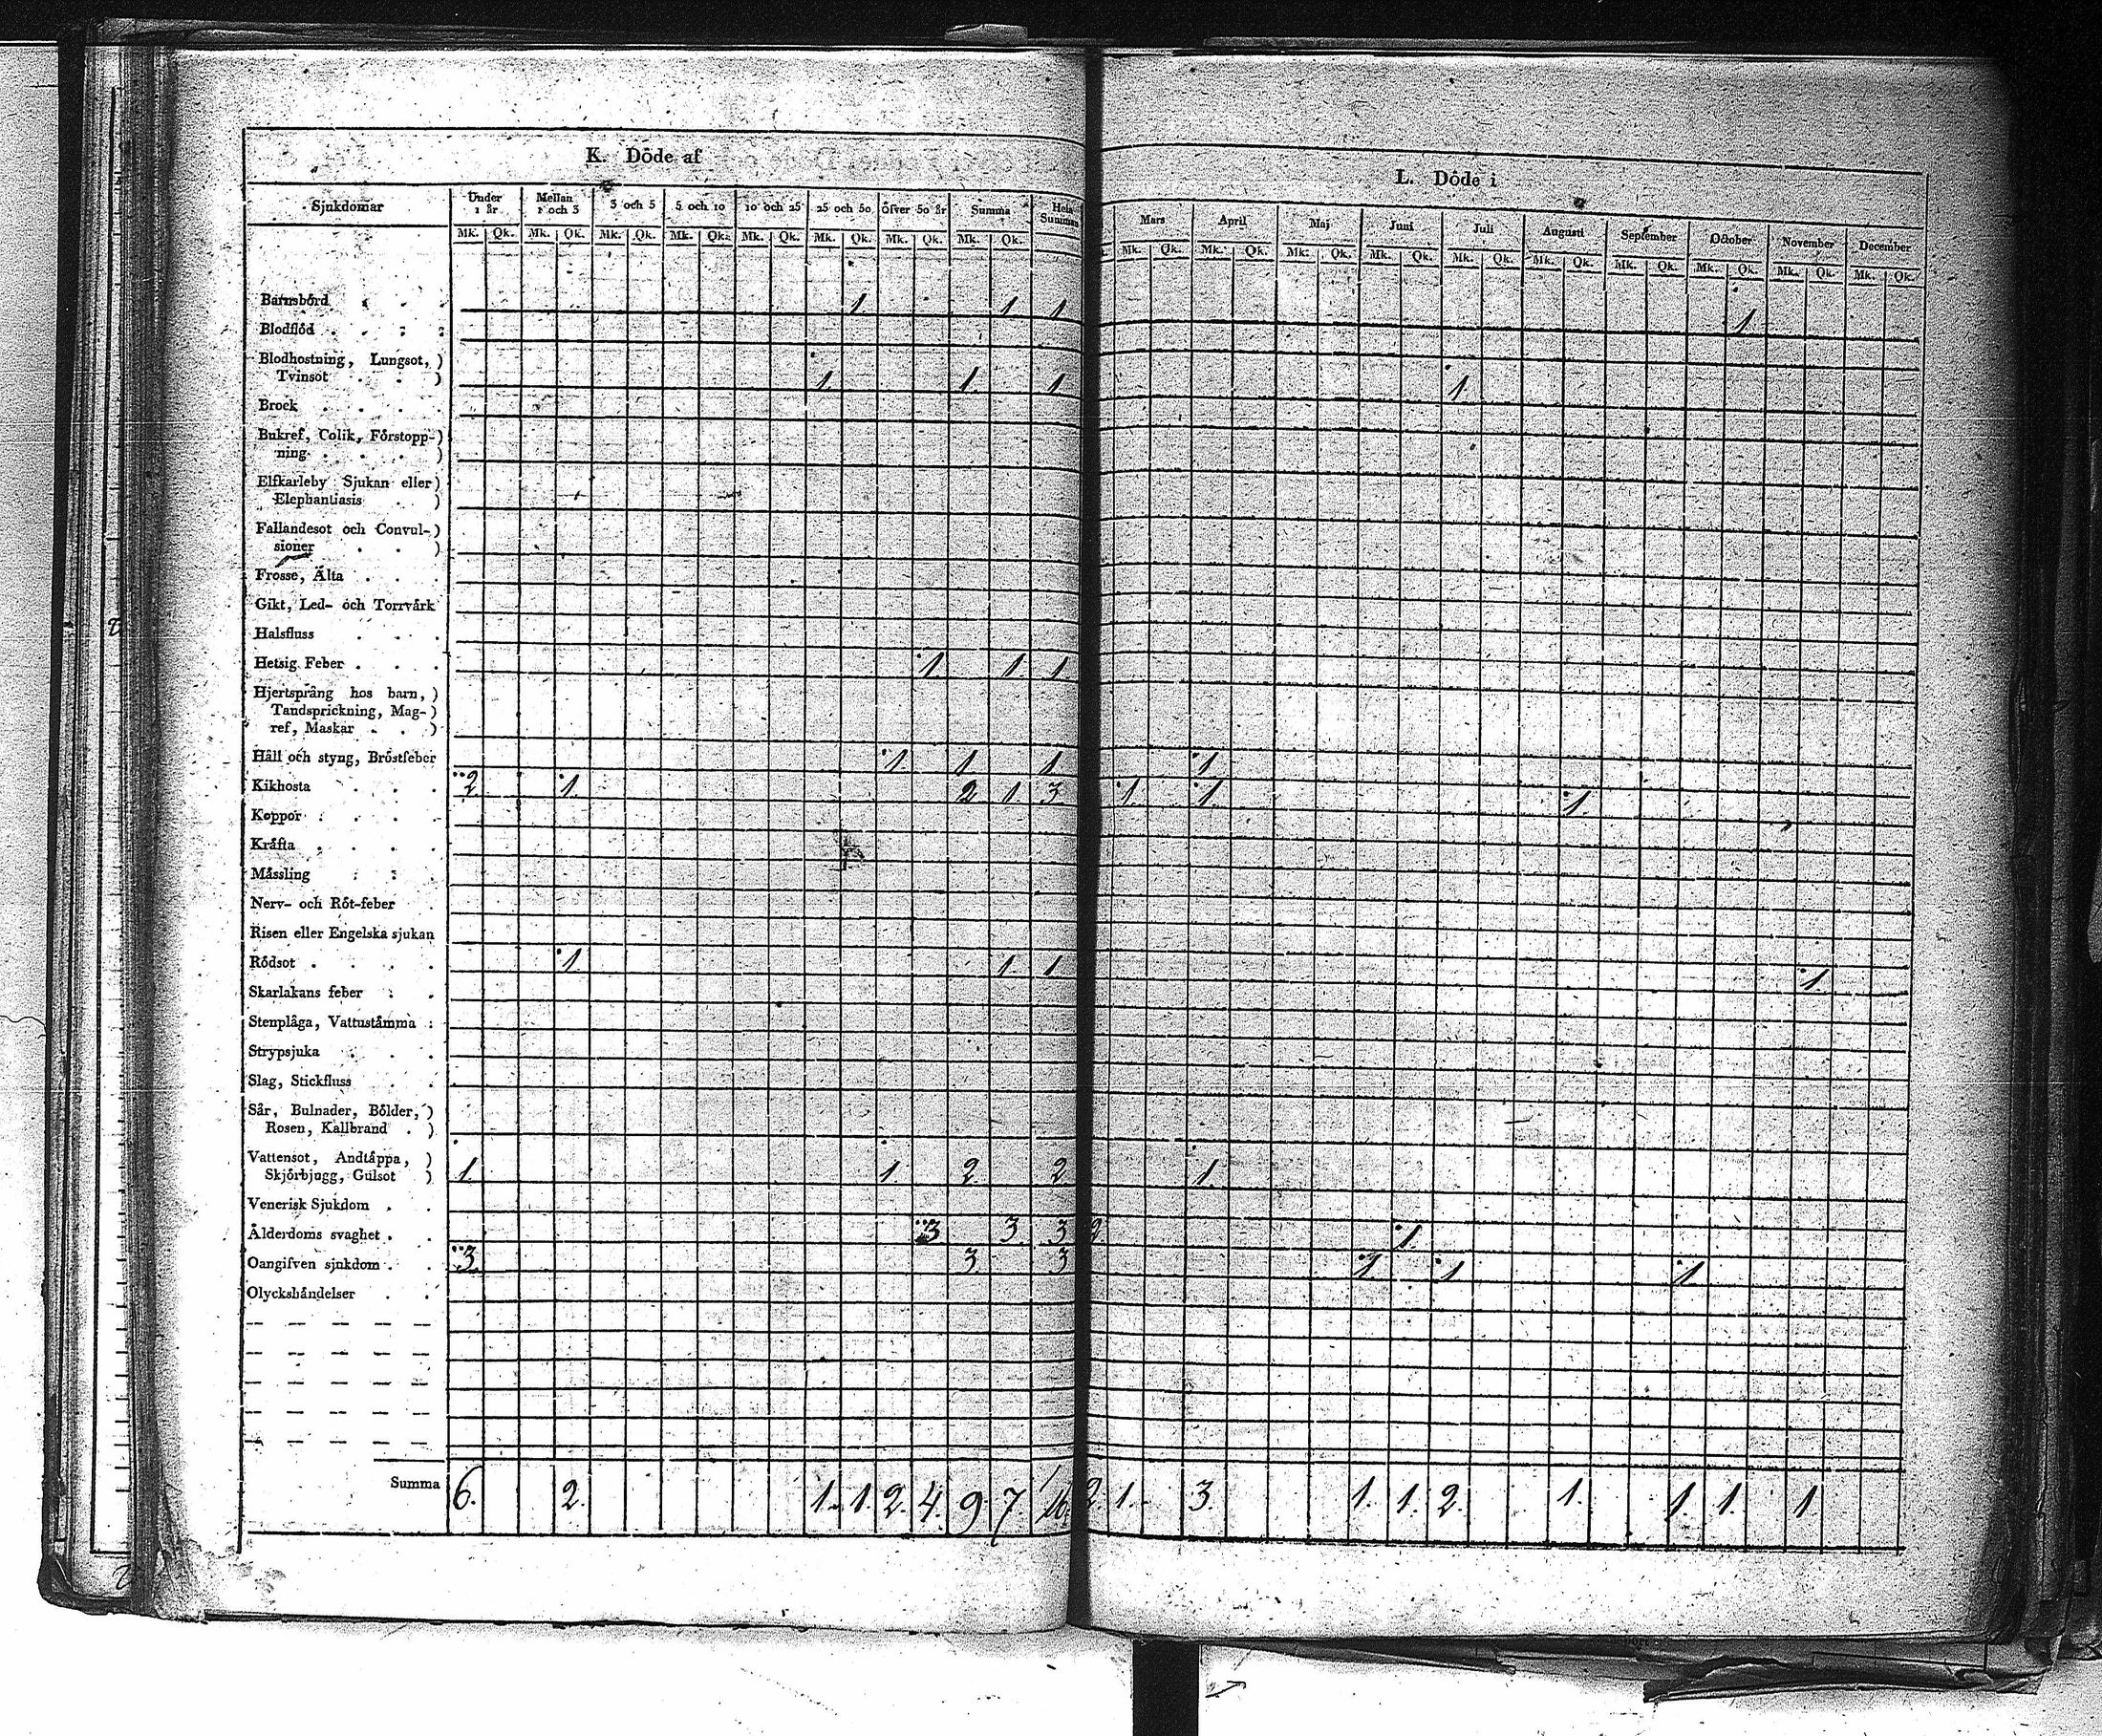 K. Döde af
Sjukdomar Under 1 år Mellan 1 och 3 3 och 5 5 och 10 10 och 25 25 och 50 öfver 50 år Summa Hela Summan
Mk. Qk. Mk. Qk. Mk. Qk. Mk. Qk. Mk. Qk. Mk. Qk. Mk. Qk. Mk. Qk.
Barnsbörd 1 1 1
Blodflöd
Blodhostning, Lungsot,)
Tvinsot ) 1 1 1
Brock
Bukref, Colik, Förstopp-)
ning )
Elfkarleby Sjukan eller)
Elephantiasis )
Fallandesot och Convul-)
sioner )
Frosse, Älta
Gikt, Led- och Torrvärk
Halsfluss
Hetsig Feber 1 1 1
Hjertsprång hos barn,)
Tandsprickning, Mag-)
ref, Maskar )
Håll och styng, Bröstfeber 1 1 1
Kikhosta 2 1 2 1 3
Koppor
Kräfta
Mässling
Nerv- och Röt-feber
Risen eller Engelska sjukan
Rödsot 1 1 1
Skarlakans feber
Stenplåga, Vattustämma
Strypsjuka
Slag, Stickfluss
Sår, Bulnader, Bölder,)
Rosen, Kallbrand )
Vattensot, Andtäppa, )
Skjörbjugg, Gulsot ) 1 1 2 2
Venerisk Sjukdom
Ålderdoms svaghet 3 3 3
Oangifven sjukdom 3 3 3
Olyckshändelser
Summa 6. 2. 1. 1. 2. 4. 9. 7. 16
L. Döde i
Mars April Maj Juni Juli Augusti September October November December
Mk. Qk. Mk. Qk. Mk. Qk. Mk. Qk. Mk. Qk. Mk. Qk. Mk. Qk. Mk. Qk. Mk. Qk. Mk. Qk.
1
1
1
1 1 1
1
1
2 1
1 1 1
2 1. 3. 1. 1. 2. 1. 1. 1. 1.